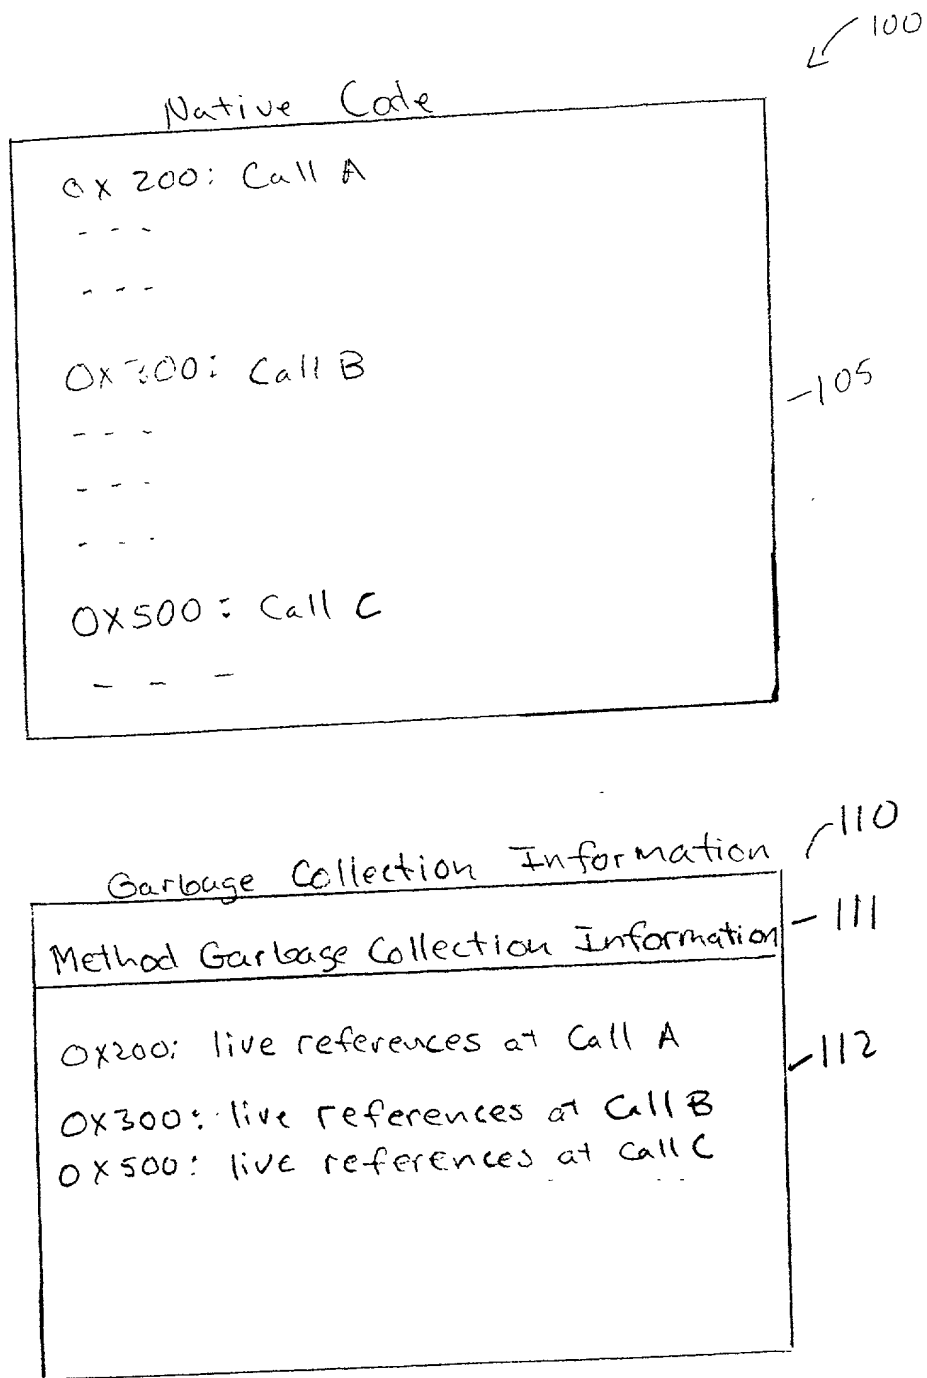 100
Native Code
0x200: Call A
- - -
- - -
0x300: Call B
- - -
- - -
- - -
105
0x500: Call C
- - -
110
Garbage Collection Information
Method Garbage Collection Information
111
0x200: live references at Call A
112
0x300: live references at Call B
0x500: live references at Call C